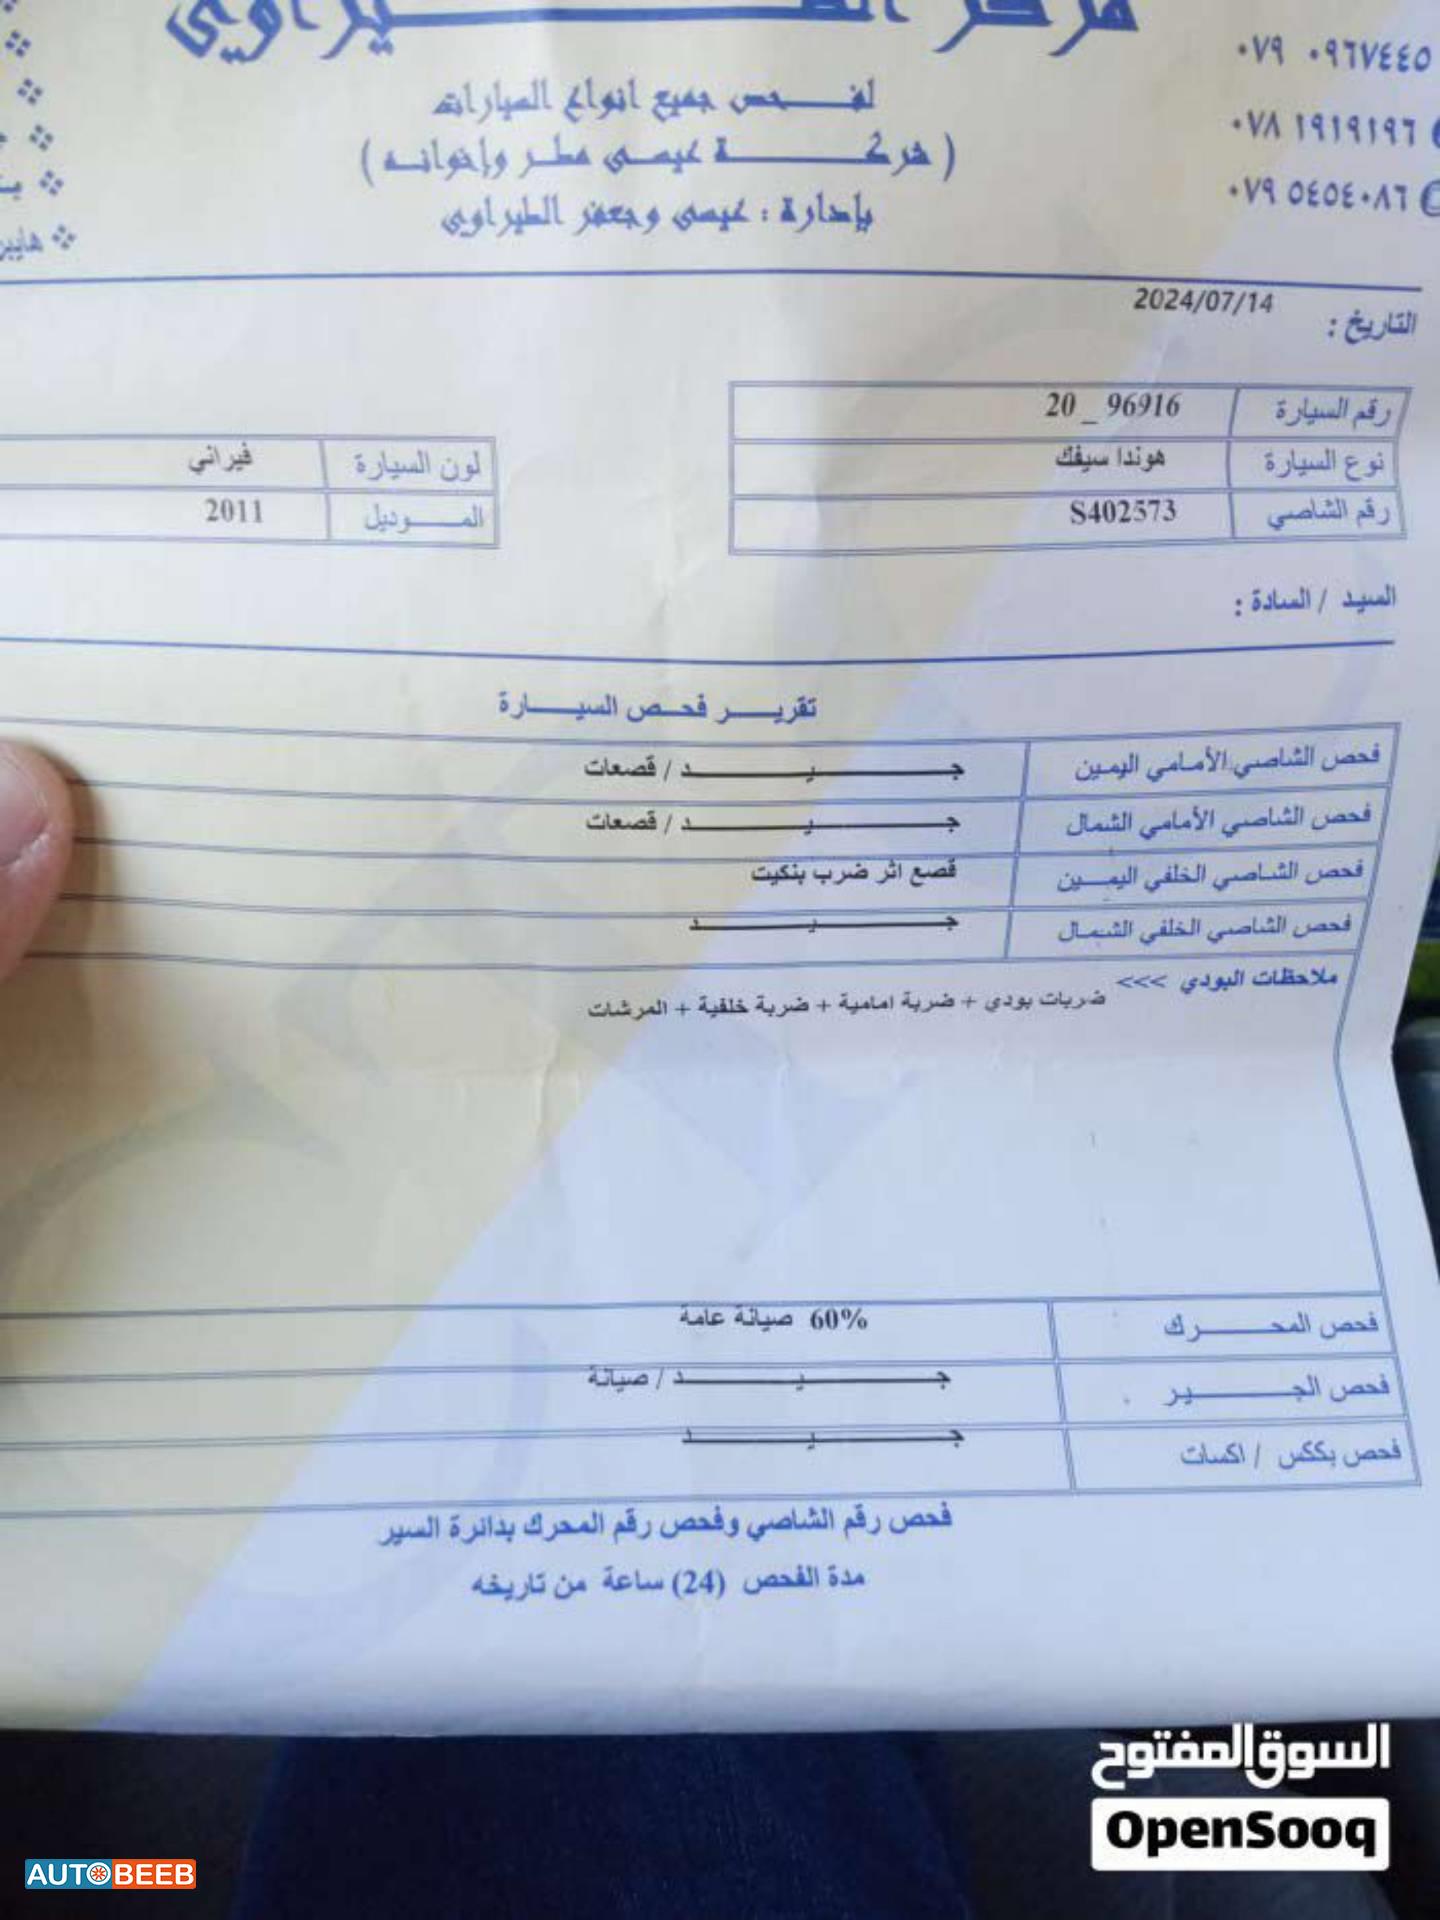 ٠٧٩ ٠٩٦٧٤٤٥
٠٧٨ ١٩١٩١٩٦
٠٧٩ ٥٤٥٤٠٨٦
لفحص جميع انواع السيارات
( شركة عيسى مطر وإخوانه )
بإدارة : عيسى وجعفر الطيراوي
التاريخ : 2024/07/14
رقم السيارة 20 _ 96916
نوع السيارة هوندا سيفك
رقم الشاصي S402573
لون السيارة فيراني
الموديل 2011
السيد / السادة :
تقرير فحص السيارة
فحص الشاصي الأمامي اليمين جيد / قصعات
فحص الشاصي الأمامي الشمال جيد / قصعات
فحص الشاصي الخلفي اليمين قصع اثر ضرب بنكيت
فحص الشاصي الخلفي الشمال جيد
ملاحظات البودي >>>
ضربات بودي + ضربة امامية + ضربة خلفية + المرشات
فحص المحرك 60% صيانة عامة
فحص الجير جيد / صيانة
فحص بككس / اكسات جيد
فحص رقم الشاصي وفحص رقم المحرك بدائرة السير
مدة الفحص (24) ساعة من تاريخه
السوق المفتوح
OpenSooq
AUTOBEEB